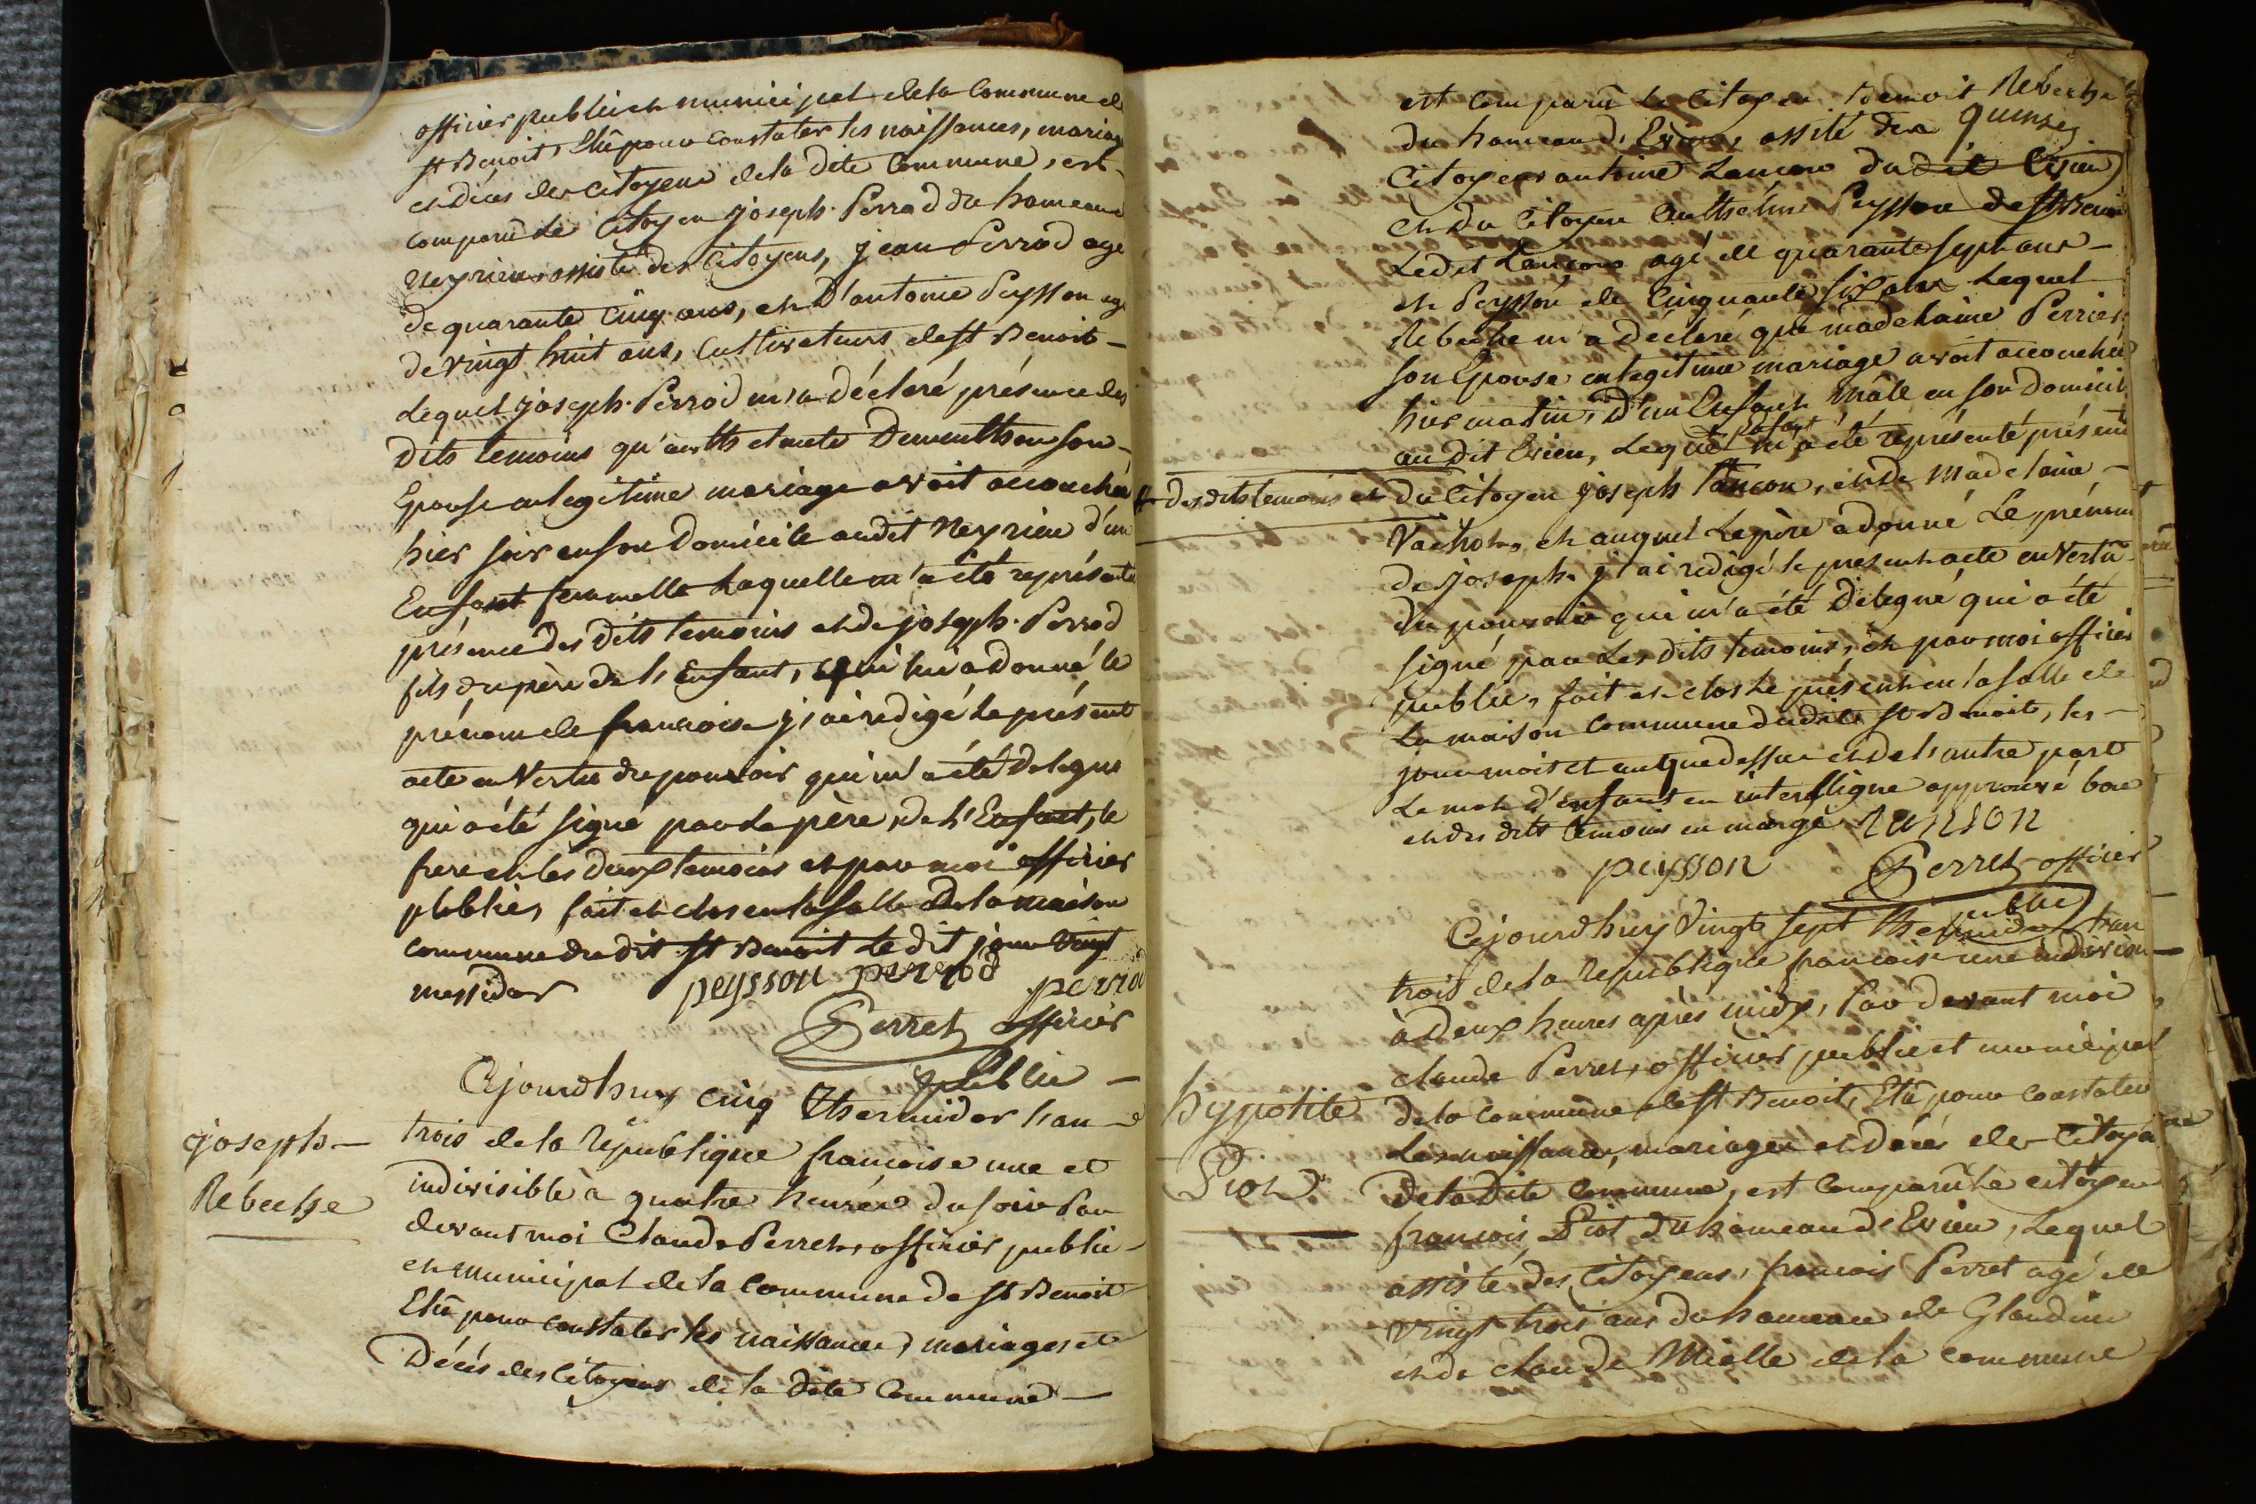 officier public et municipal de la commune de
st Benoit, Elû pour constater les naissances, mariages
et décès des citoyens de la dite commune, est
comparû le citoyen joseph Perrod du hameau
neyrieu assisté des citoyens, jean Perrod agé
de quarante cinq ans, et d'antoine Peysson agé
de vingt huit ans, cultivateurs de st Benoit
Lequel joseph Perrod m'a déclaré présence des
dits temoins qu'anthelmete Dementhon son
Epouse en legitime mariage avoit accouchée
hier soir en son Domicile audit Neyrieu d'un
Enfant femmelle Laquelle m'a été représentée
présence des dits temoins et de joseph Perrod
fils du père de l'Enfant, qui lui a donné le
prénom de francoise j'ai redigé le présent
acte en Vertu du pouvoir qui m'a été delegué
qui a été signé par le père, de l'Enfant, le
frere et les deux temoins et par moi officier
publics, fait et clos en la salle de la maison
commune du dit st Benoit Le dit jour vingt
messidor peysson perrod perrod
Perret officier
public
joseph
Rebecthe
Cejourdhuy cinq thermidor l'an
trois de la République francoise une et
indivisible à quatre heures du soir Par
devant moi Claude Perret, officier public
et municipal de la commune de st Benoit
Elû pour constater les naissances, mariages et
Décés des citoyens de la dite commune
est comparû le citoyen Benoit Rebecthe
du hameau d'Evieu, assité des quinze
citoyens antoine Lancon dudit Evieu
et du citoyen anthelme Peysson de st Benoit
Ledit Lancon agé de quarante sept ans
et Peysson de cinquante six ans Lequel
Rebecthe m'a déclaré que madelaine Perrier
son Epouse en legitime mariage avoit accouchée
hier matin, d'un Enfant mâle en son domicile
enfant
au dit Evieu, Lequel m'a été représenté présence
des dits temoins et du citoyen joseph Lancon, et de Madelaine
Vachot, et auquel Le père a donné Le prénom
de joseph. j'ai redigé le present acte en Vertu
du pouvoir qui m'a été Délegué qui a été
signé par Les dits temoins, et par moi officier
public, fait et clos Le présent en la salle de
La maison commune dudit st Benoit, les
jour mois et an que dessus et de l'autre part
Le mot d'enfant en interligne approuvé bon
et des dits temoins en marge lanson
peysson Perret officier
public
hypolite
Piot
Cejourdhuy Vingt sept Thermidor l'an
trois de la République francoise une indivisible
à Deux heures après midy, Par devant moi
claude Perret, officier public et municipal
de la commune de st Benoit, Elû pour constater
Les naissances, mariages et décès des citoyens
De la Dite commune, est comparû le citoyen
francois Piot du hameau d'Evieu, Lequel
assisté des citoyens, francois Perret agé de
vingt trois ans du hameau de Glandieu
et de claude Mielle de la commune